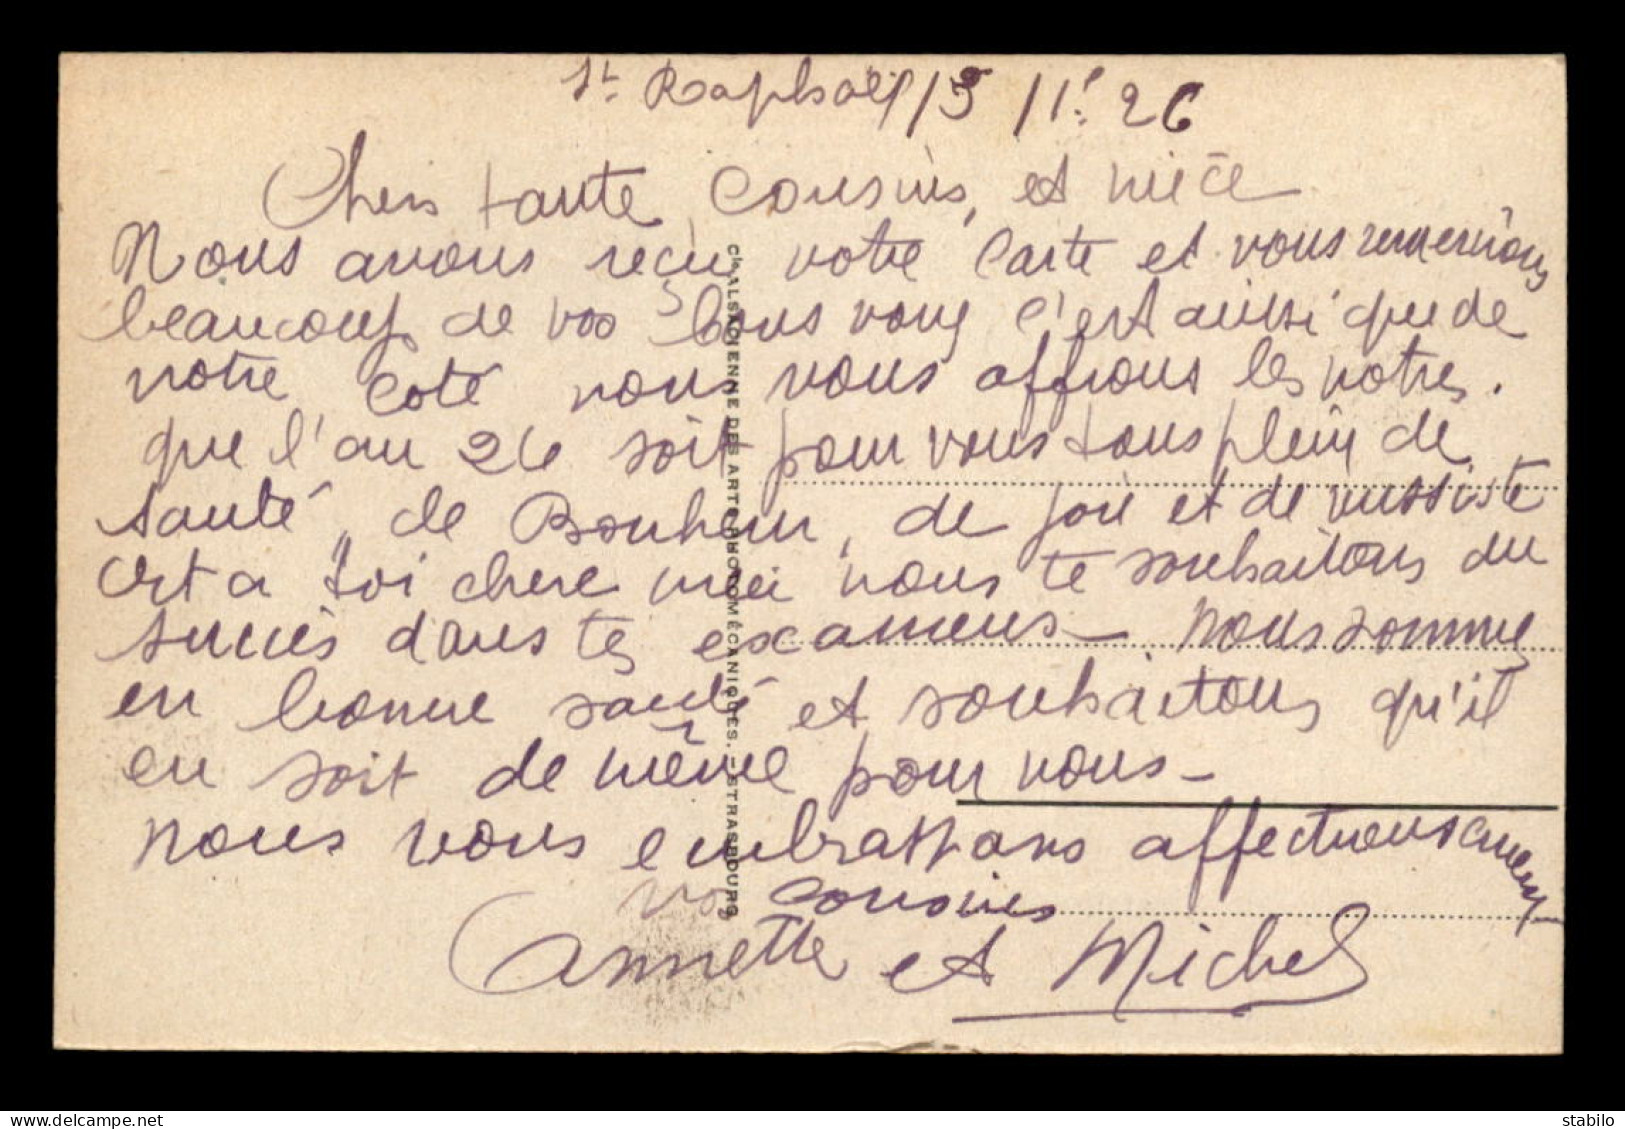 St. Raphaël 3 1 26
Chers tante, Cousins, et nièce
Nous avons reçu votre Carte et vous remercions
beaucoup de vos bons vœux c'est aussi que de
notre coté nous vous offrons les notres.
que l'an 26 soit pour vous tous plein de
santé, de Bonheur, de joie et de
et a toi chere nous te souhaitons du
succès dans tes examens - Nous sommes
en bonne santé et souhaitons qu'il
en soit de même pour vous -
Nous vous embrassons affectueusement
vos Cousins
Annette et Michel
Cie ALSACIENNE DES ARTS PHOTOMÉCANIQUES. - STRASBOURG
stabilo